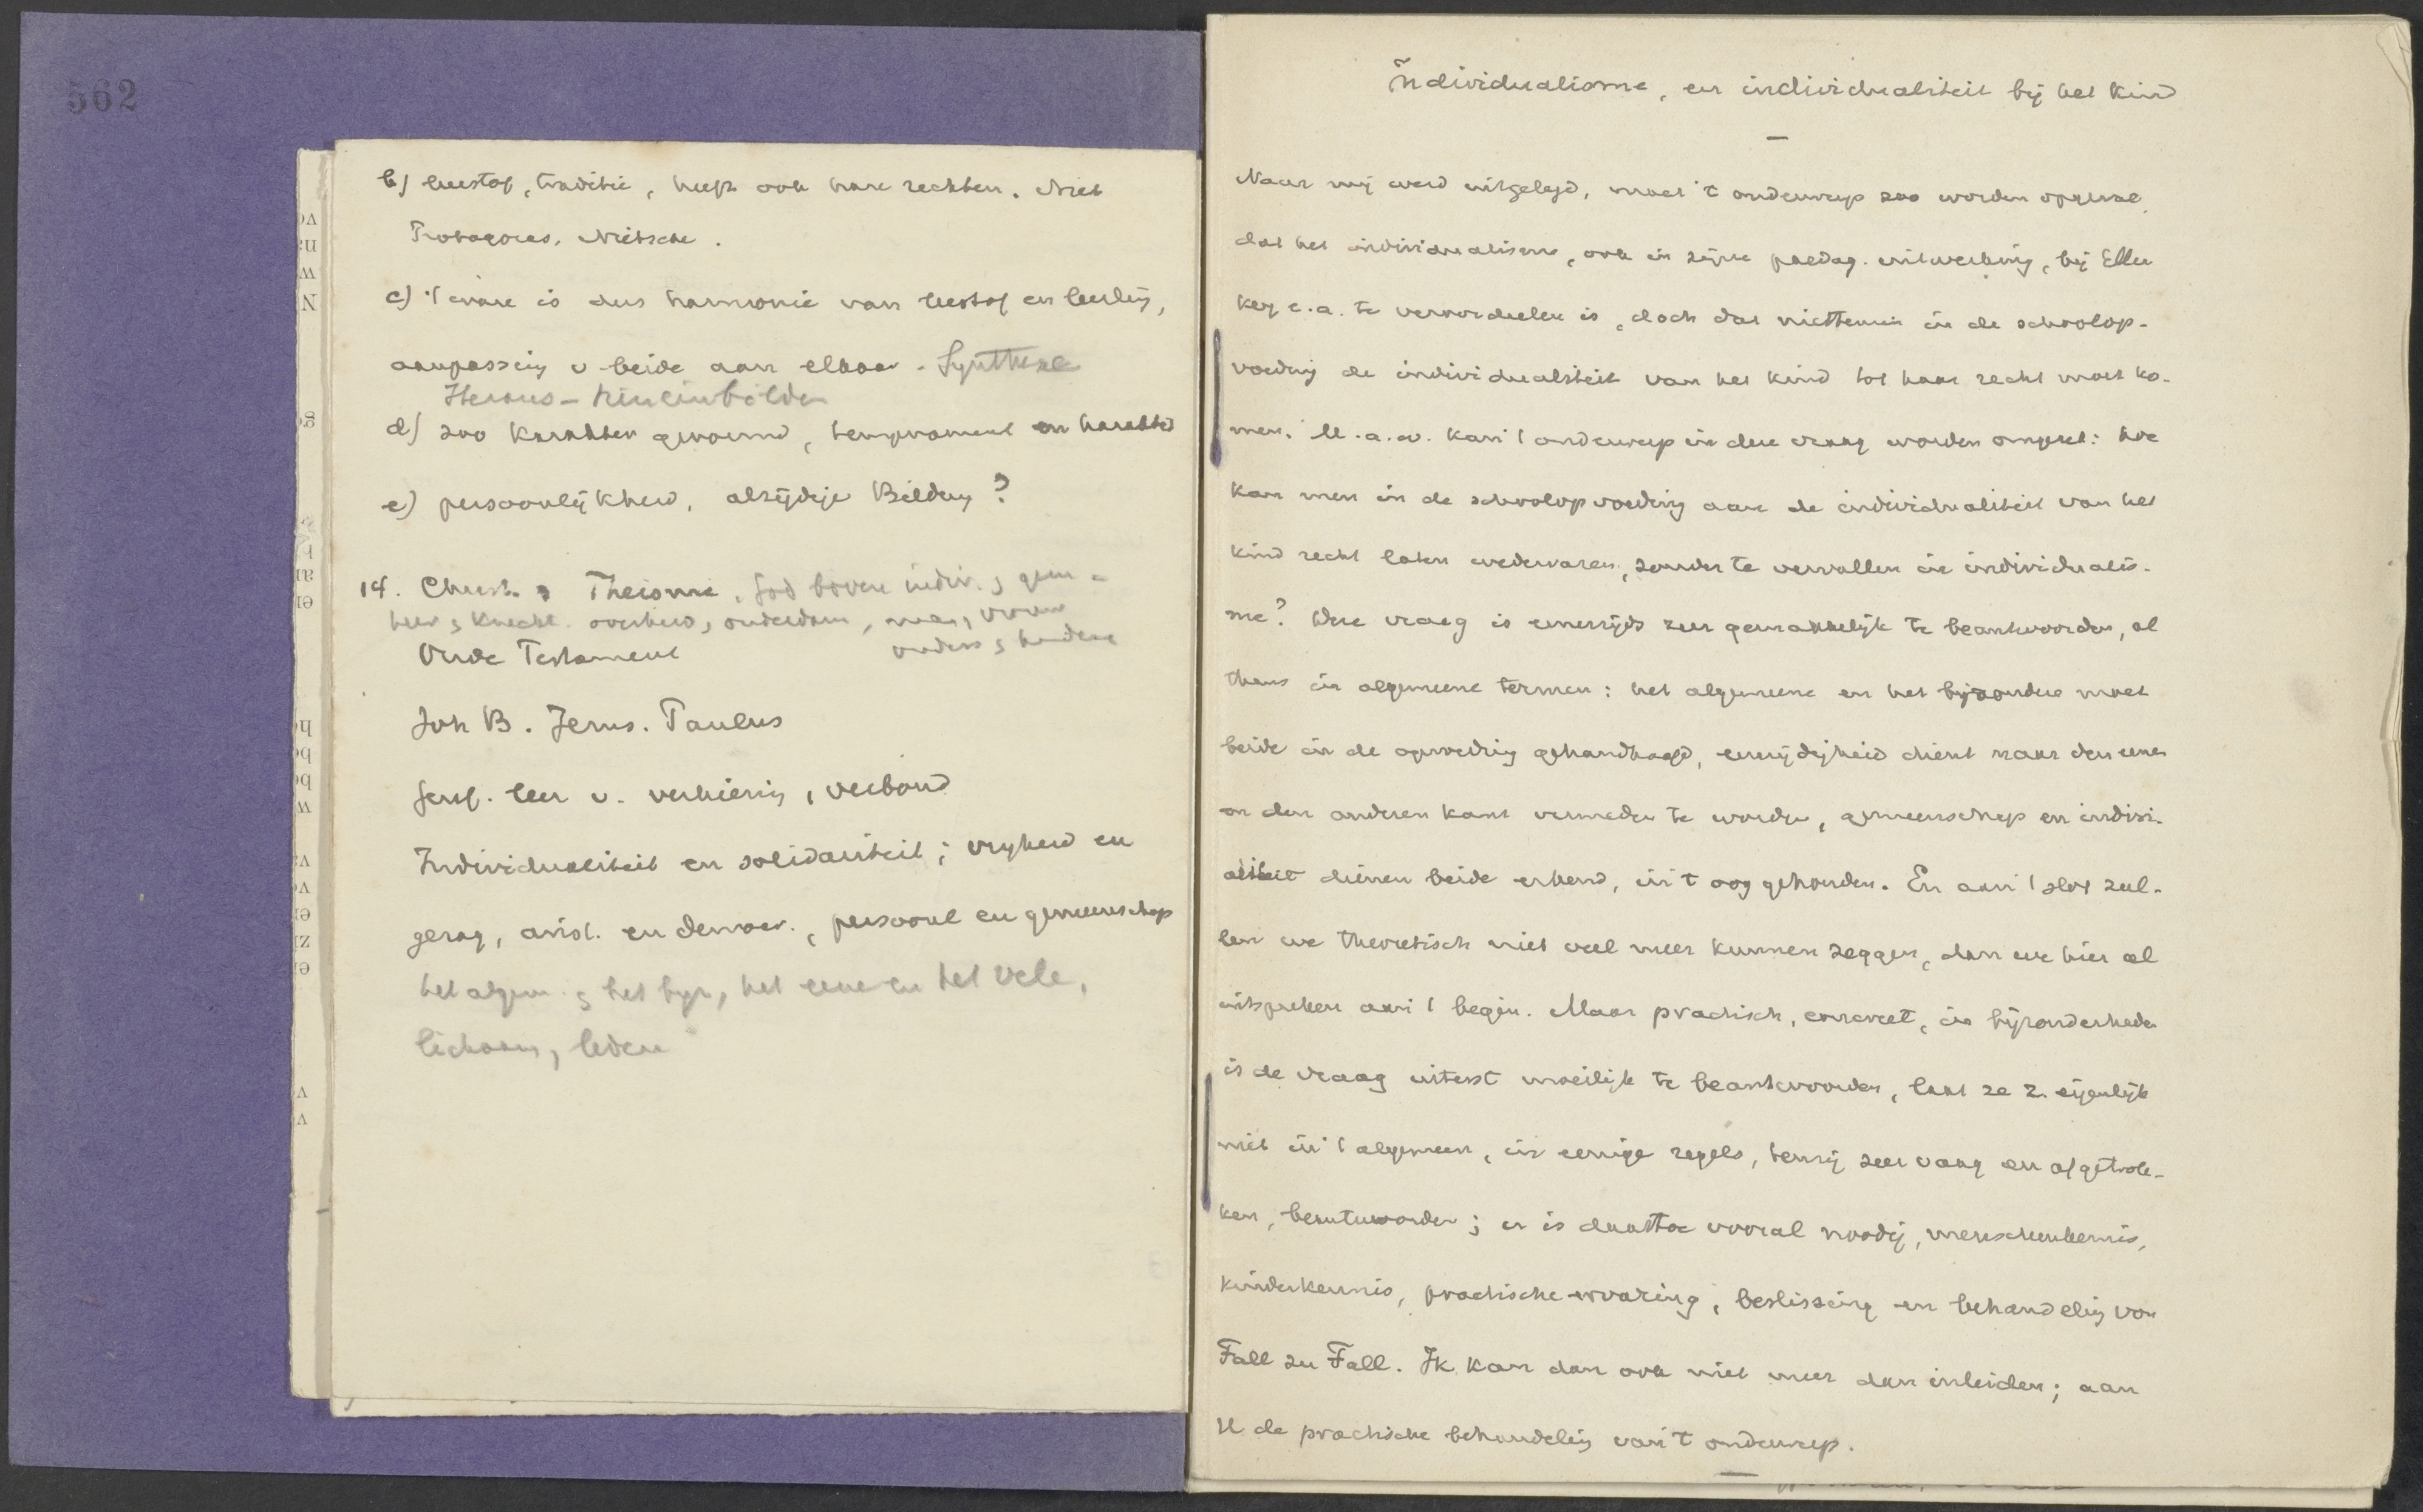 562
b) leerstof, traditie, heeft ook hare rechten. Niet
Protagoras, Nietsche.
c) 't ware is dus harmonie van leerstof en leerling,
aanpassing v. beide aan elkaar. Synthese
d) zoo karakter gevormd, temperament en karakter
e) persoonlijkheid, alzijdige Bildung?
14. Christ. Theisme, God boven indiv. & gem.
heer & knecht. overheid, onderdaan, man, vrouw
ouders & kinderen
Oude Testament
Joh B. Jezus. Paulus
Geref. leer v. verkiezing, verbond
Individualiteit en solidariteit; vrijheid en
gezag, arist. en democr., persoonl en gemeenschap
het algem. & het byz, het eene en het vele,
lichaam, leden
Individualisme, en individualiteit bij het kind
Naar mij werd uitgelegd, moet 't onderwerp zoo worden opgevat,
dat het individualisme, ook in zijne paedag. uitwerking, bij Ellen
Key e.a. te veroordeelen is, doch dat niettemin in de schoolop-
voeding de individualiteit van het kind tot haar recht moet ko-
men. M.a.w. kan 't onderwerp in deze vraag worden omgezet: hoe
kan men in de schoolopvoeding aan de individualiteit van het
kind recht laten wedervaren, zonder te vervallen in individualis-
me? Deze vraag is eenerzijds zeer gemakkelijk te beantwoorden, al
thans in algemeene termen: het algemeene en het bijzondere moet
beide in de opvoeding gehandhaafd, eenzijdigheid dient naar den eenen
en den anderen kant vermeden te worden, gemeenschap en indivi-
aliteit dienen beide erkend, in 't oog gehouden. En aan 't slot zul-
len we theoretisch niet veel meer kunnen zeggen, dan we hier al
uitspreken aan 't begin. Maar practisch, concreet, in bijzonderheden
is de vraag uiterst moeilijk te beantwoorden, laat ze z. eigenlijk
niet in 't algemeen, in eenige regels, tenzij zeer vaag en afgetrok-
ken, beantwoorden; er is daartoe vooral noodig, menschenkennis,
kinderkennis, practische ervaring, beslissing en behandeling von
Fall zu Fall. Ik kan dan ook niet meer dan inleiden; aan
U de practische behandeling van 't onderwerp.